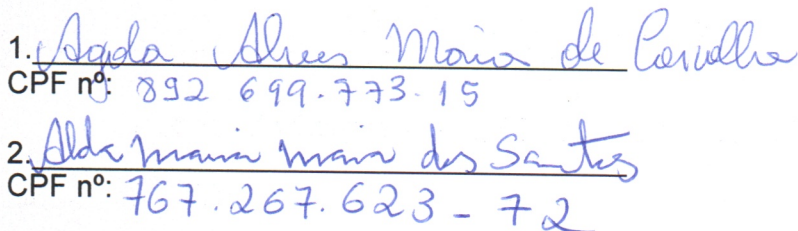 1. Agda Alves Maia de Carvalho
CPF nº: 892 699.773.15
2. Alda Maria Maia dos Santos
CPF nº: 767.267.623-72